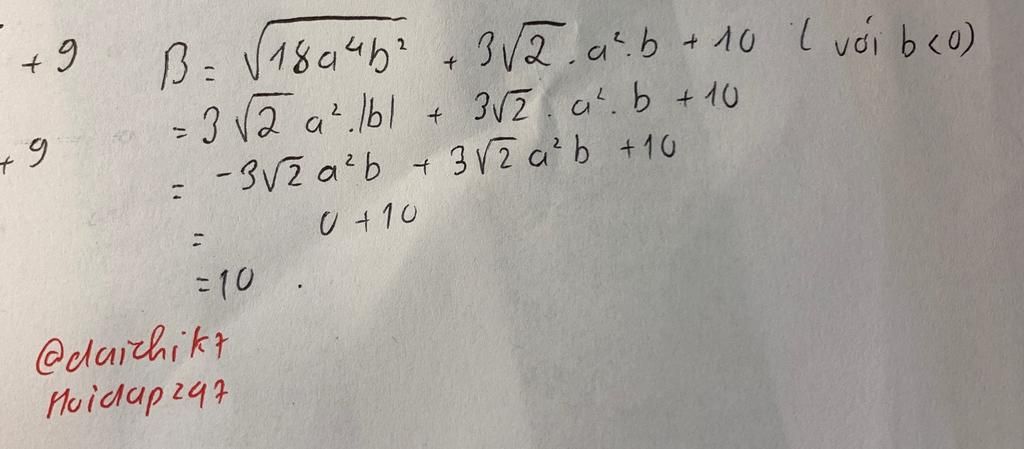 + 9
B = √18a⁴b² + 3√2 . a² . b + 10 ( với b < 0)
= 3√2 a² . |b| + 3√2 . a² . b + 10
+ 9
= -3√2 a²b + 3√2 a²b + 10
= 0 + 10
= 10 .
@daichik7
Hoidap247